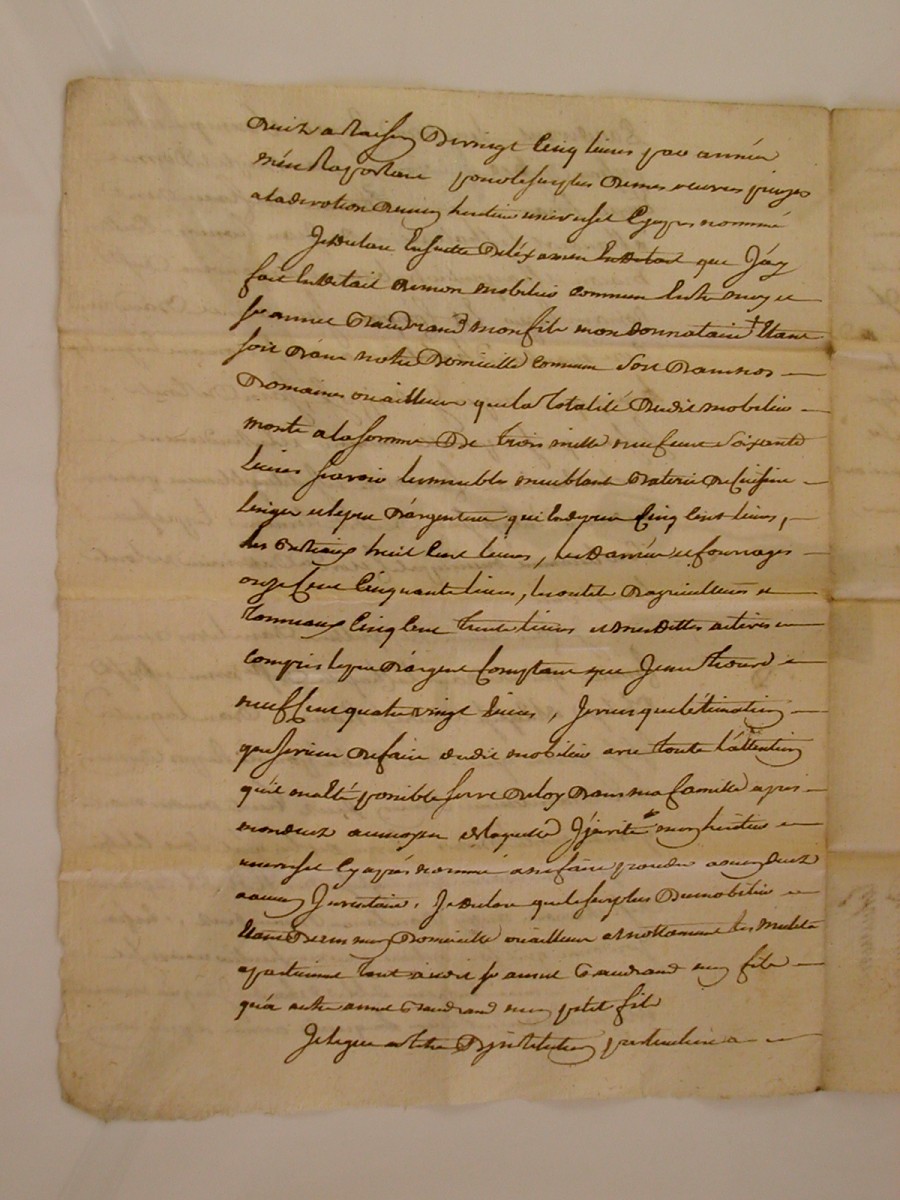 droit a raison De vingt Cinq livres par année
m'en Raportant pour le surplus De mes œuvres pieuses
a la devotion De mon heritier universel Cy apres nommé
Je Declare Ensuitte De l'Examen En Detail que J'ay
fait En Detail De mon mobilier commun Entre moy et
Sr annet Gaudrand mon fils mon Donnataire Etant
soit Dans notre Domicille commun soit Dans nos
Domaines ou ailleurs que la totalité Dudit mobilier
monte a la somme De trois mille neuf cent soixante
livres savoir les meubles meublant Baterie De Cuisine
linges et le peu D'argenterie qui En Depend Cinq Cent livres,
les Bestiaux huit Cent livres, les Danrées et fourrages
onze Cent Cinquante livres, les outils D'agriculture et
tonneaux Cinq Cent trente livres et mes Dettes actives
compris le peu D'argent Comptant que Jean
neuf Cent quatre vingt livres, Je veux que l'Estimation
que je viens De faire dudit mobilier avec toute l'attention
qu'il m'a Eté possible serve De loy Dans ma famille apres
mon deces au moyen De laquelle J'invite mon heritier
universel Cy apres nommé a ne faire proceder a mon deces
a aucun Inventaire, Je Declare que le surplus Du mobilier
Etant Dans mon Domicille ou ailleurs et nottamment les mulets
apartiennent tant audit Sr annet Gaudrand mon fils
qu'a autre annet Gaudrand mon petit fils
Je legue a titre D'institution particuliere a